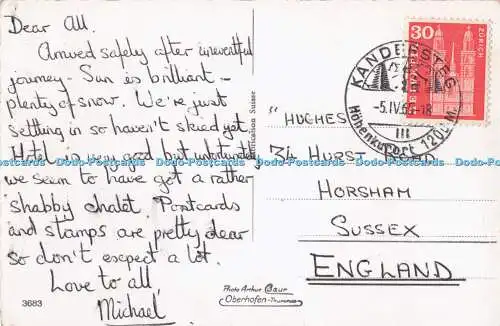 Dear All.
Arrived safely after uneventful
journey - Sun is brilliant -
plenty of snow. We're just
settling in so haven't skied yet.
Hotel is very good but unfortunately
we seem to have got a rather
shabby chalet. Postcards
and stamps are pretty dear
so don't expect a lot.
Love to all,
Michael
3683
Photo Arthur Baur
Oberhofen-Thunersee
Fabrication Suisse
30
HELVETIA
ZÜRICH
KANDERSTEG
-5.IV.65-18
Höhenkurort 1200 M.
"HUGHES"
HURST ROAD
HORSHAM
SUSSEX
ENGLAND
Dodo-Postcards Dodo-Postcards Dodo-Postcards Dodo-Postcards Dodo-Postcards